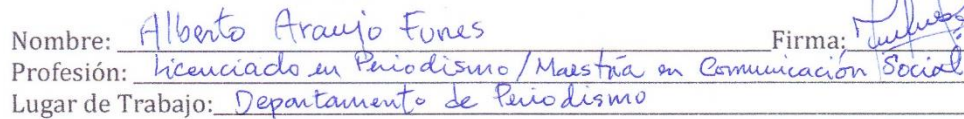 Nombre: Alberto Araujo Funes Firma:
Profesión: Licenciado en Periodismo/Maestría en Comunicación Social
Lugar de Trabajo: Departamento de Periodismo